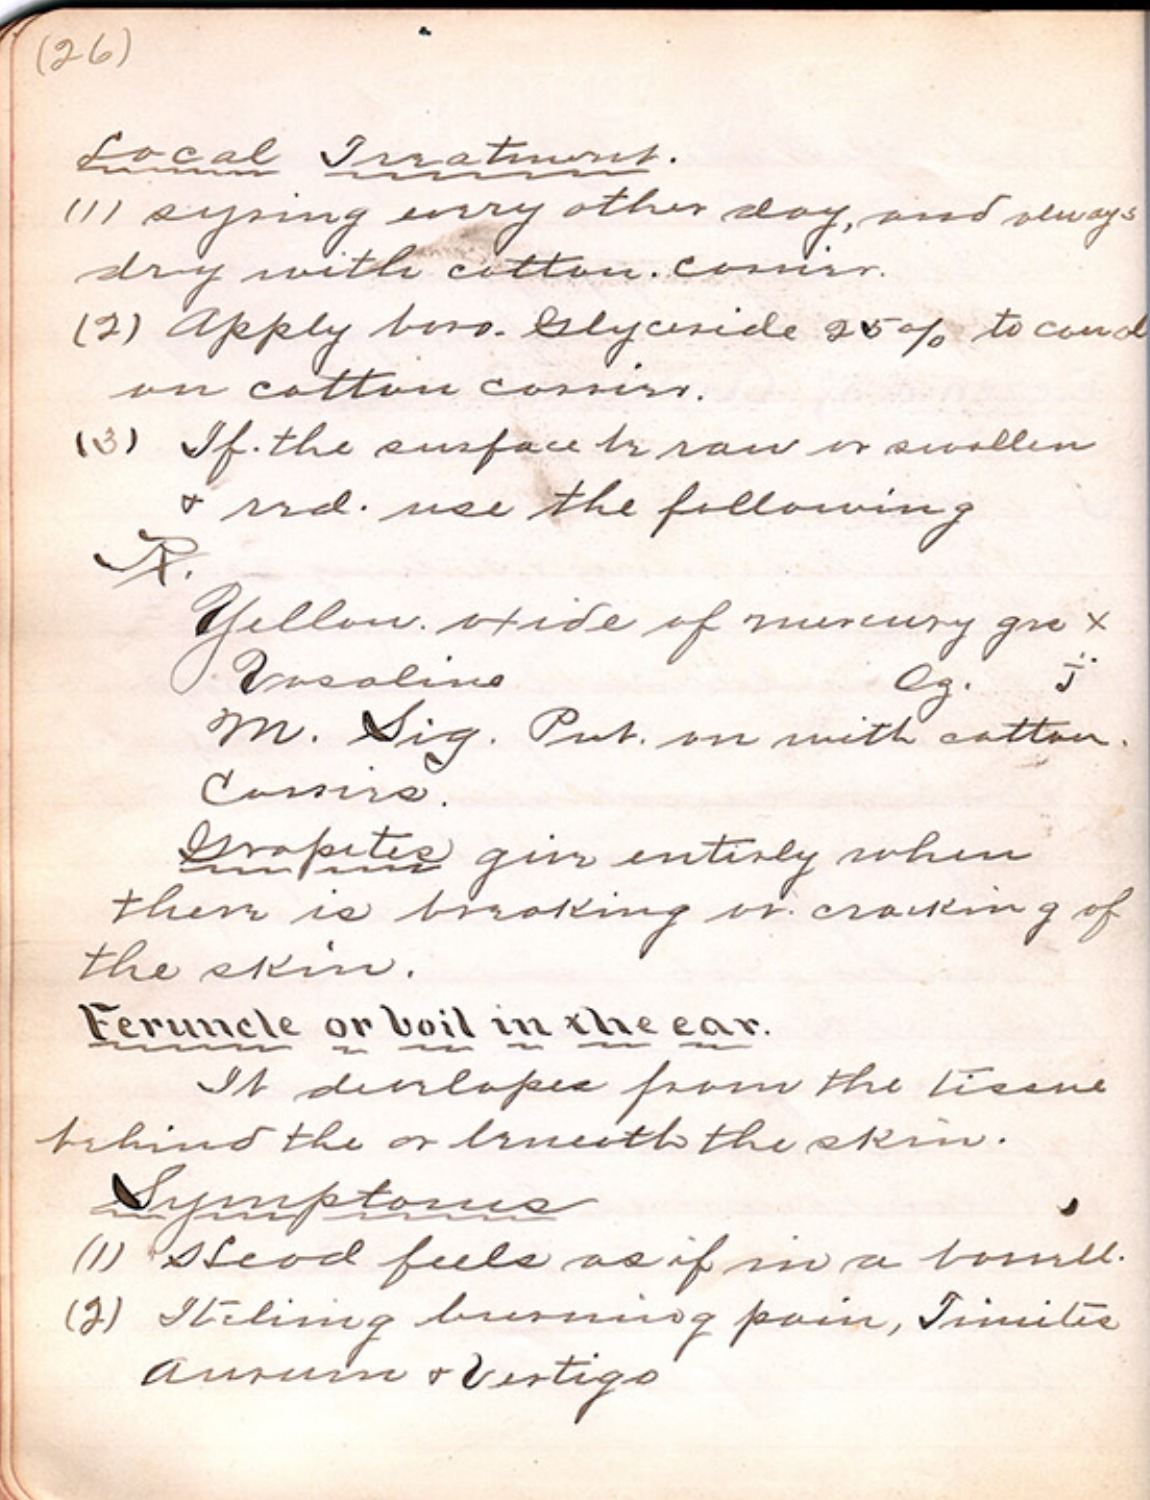 (26)
Local Treatment.
(1) syring every other day, and always
dry with cotton. carrier.
(2) Apply boro. Glyceride 25% to canal
on cotton carrier.
(3) If. the surface be raw or swollen
& red. use the following
℞.
Yellow. oxide of mercury grs x
Vasaline j
M. Sig. Put. on with cotton.
Carrirs.
Grapites give entirly when
there is breaking or. cracking of
the skin.
Feruncle or boil in the ear.
It developes from the tissue
behind the or beneath the skin.
Symptoms
(1) Head feels as if in a barrell.
(2) burning pain, Tinites
Aurum & Vertigo